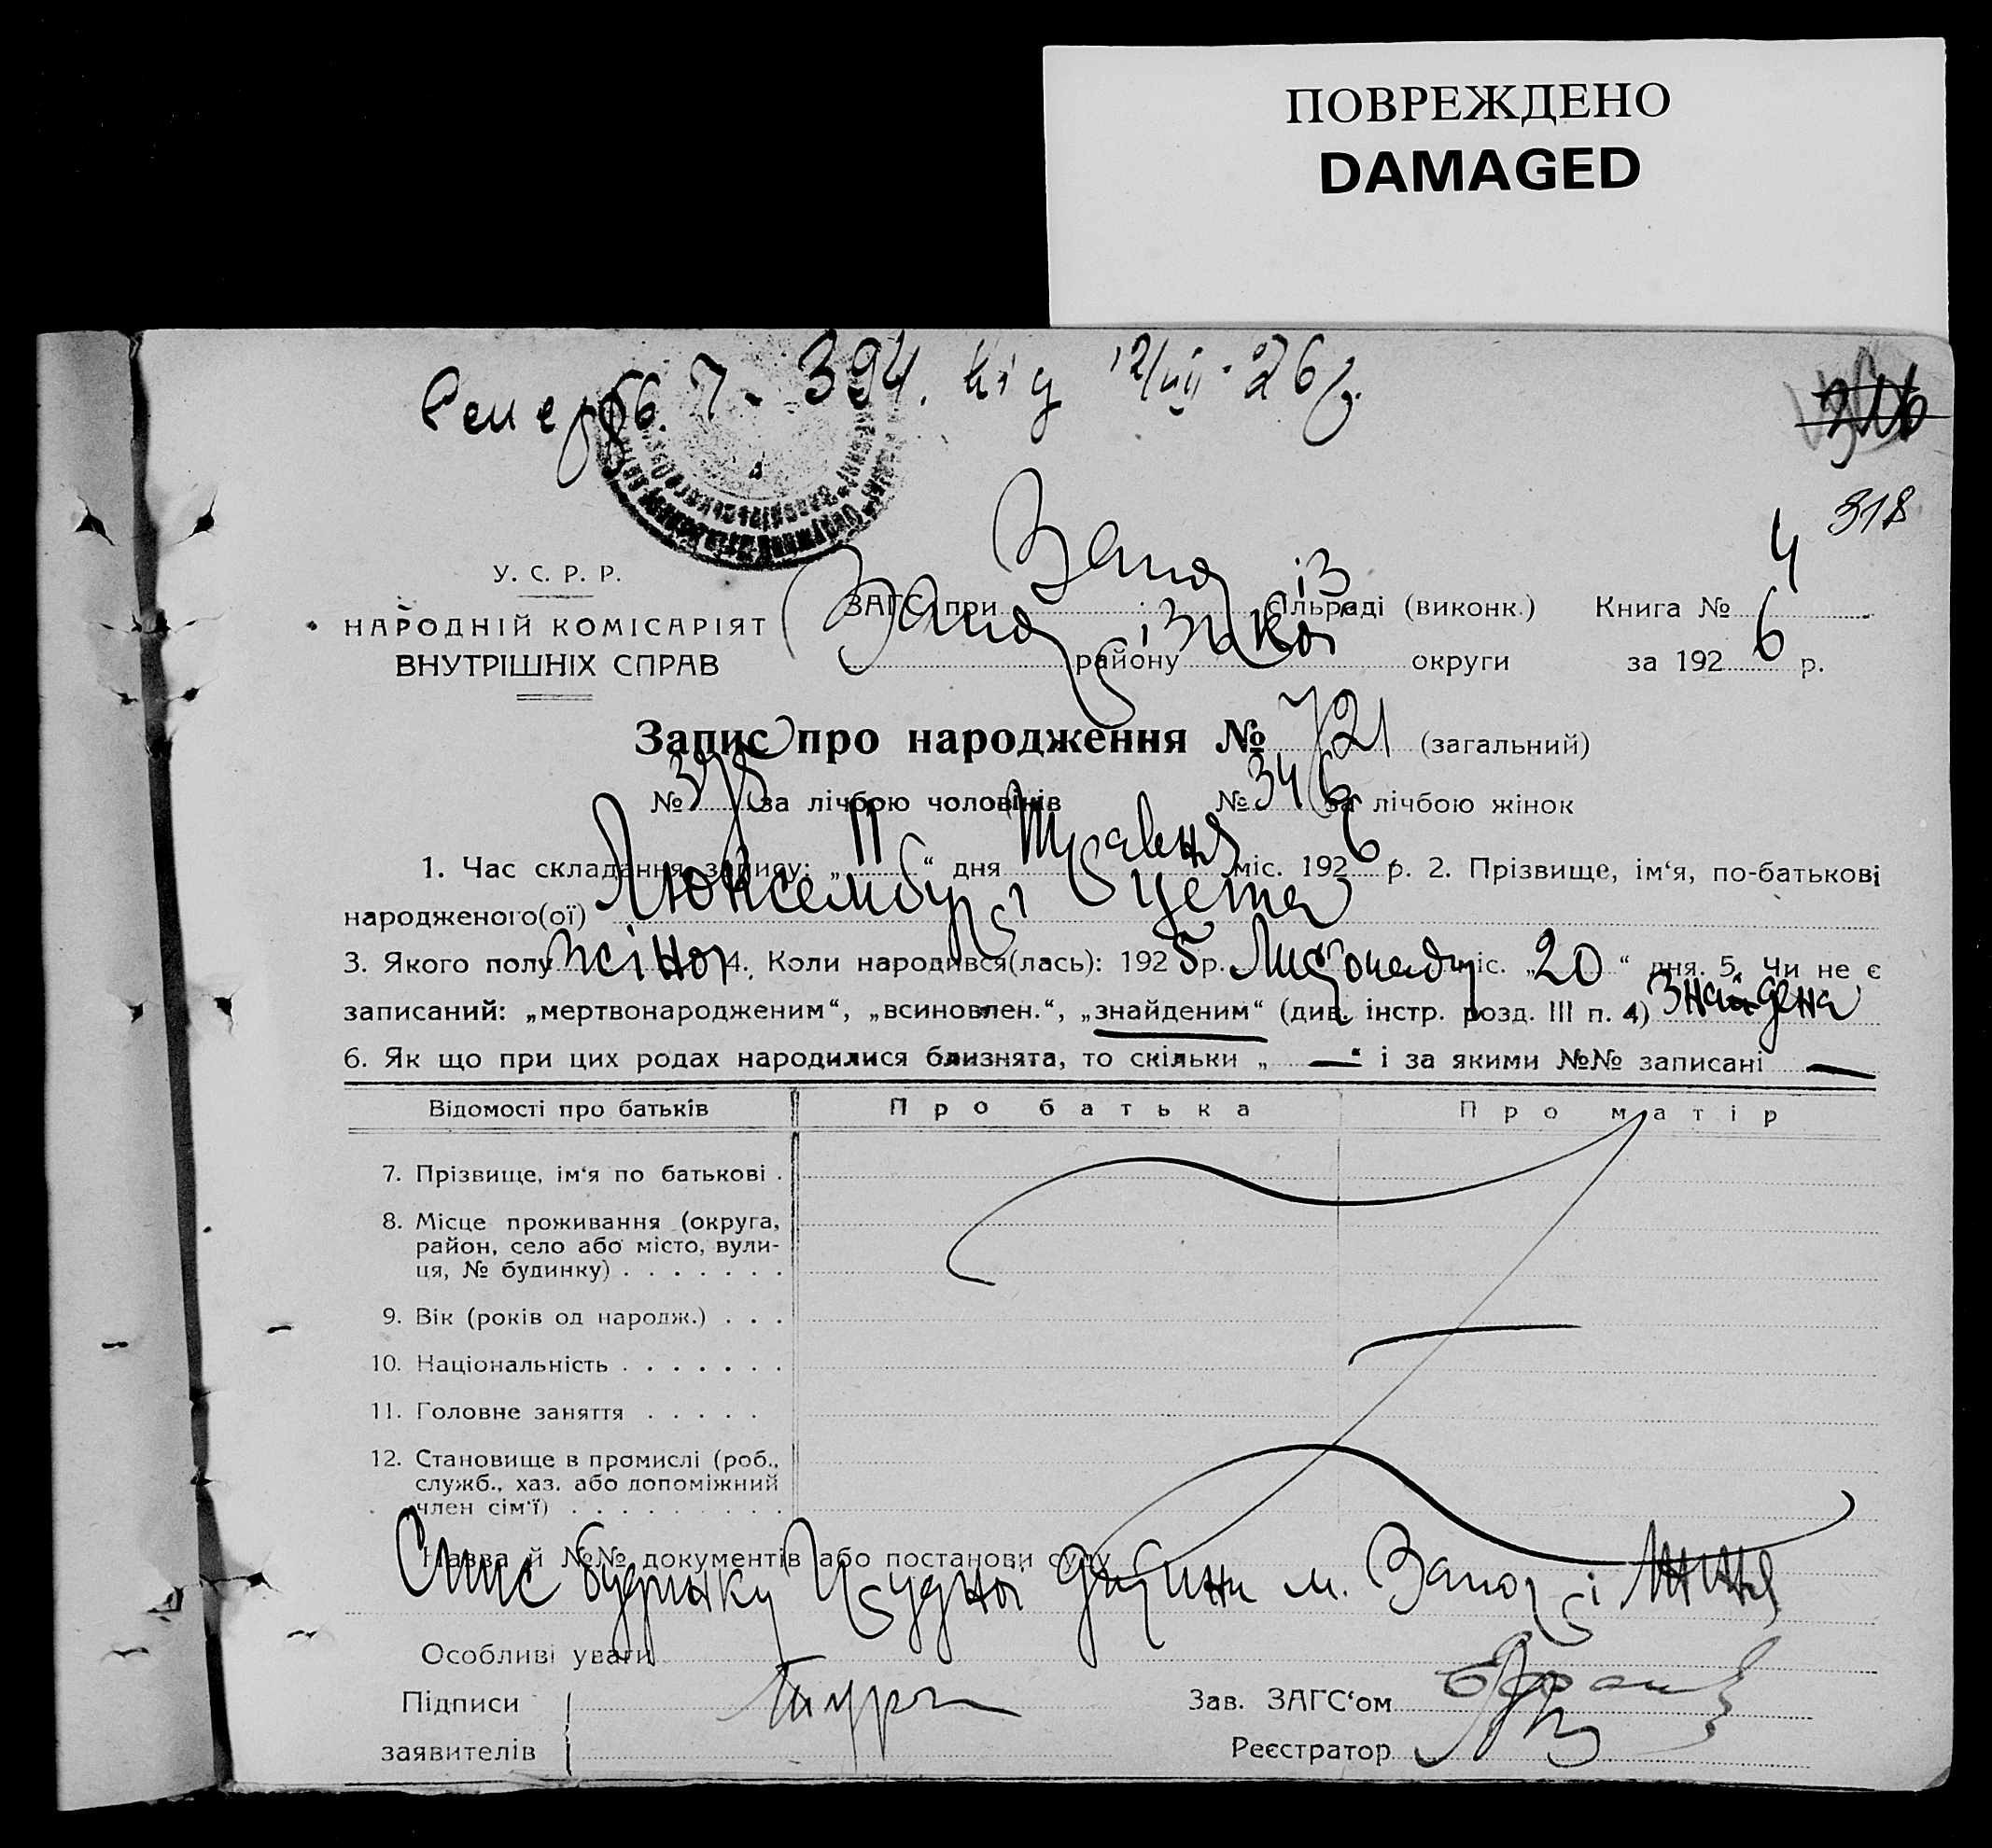 ПОВРЕЖДЕНО
DAMAGED
394. від 12/VII-26 р.
318
У. С. Р. Р.
НАРОДНІЙ КОМІСАРІЯТ
ВНУТРІШНІХ СПРАВ
ЗАГС при Сільраді (виконк.) Книга № 4
району округи за 1926 р.
Запис про народження № 721 (загальний)
№ 375 за лічбою чоловіків № 346 за лічбою жінок
1. Час складання запису: „11“ дня Травня міс. 1926 р. 2. Прізвище, ім‘я, по-батькові
народженого(ої) Люксембург
3. Якого полу жіноч 4. Коли народився(лась): 1925 р. Листопаду міс. „20“ дня. 5. Чи не є
записаний: „мертвонародженим“, „всиновлен.“, „знайденим“ (див. інстр. розд. III п. 4) Знайдена
6. Як що при цих родах народилися близнята, то скільки „ — “ і за якими №№ записані —
Відомості про батьків Про батька Про матір
7. Прізвище, ім‘я по батькові .
8. Місце проживання (округа,
район, село або місто, вули-
ця, № будинку) . . . . . . .
9. Вік (років од народж.) . . .
10. Національність . . . . . . .
11. Головне заняття . . . . .
12. Становище в промислі (роб.,
служб., хаз. або допоміжний
член сім‘ї) . . . . . . . . .
Назва й №№ документів або постанови суду
будинку дитини м. Запоріжжя
Особливі уваги
Підписи Зав. ЗАГС‘ом
заявителів Реєстратор